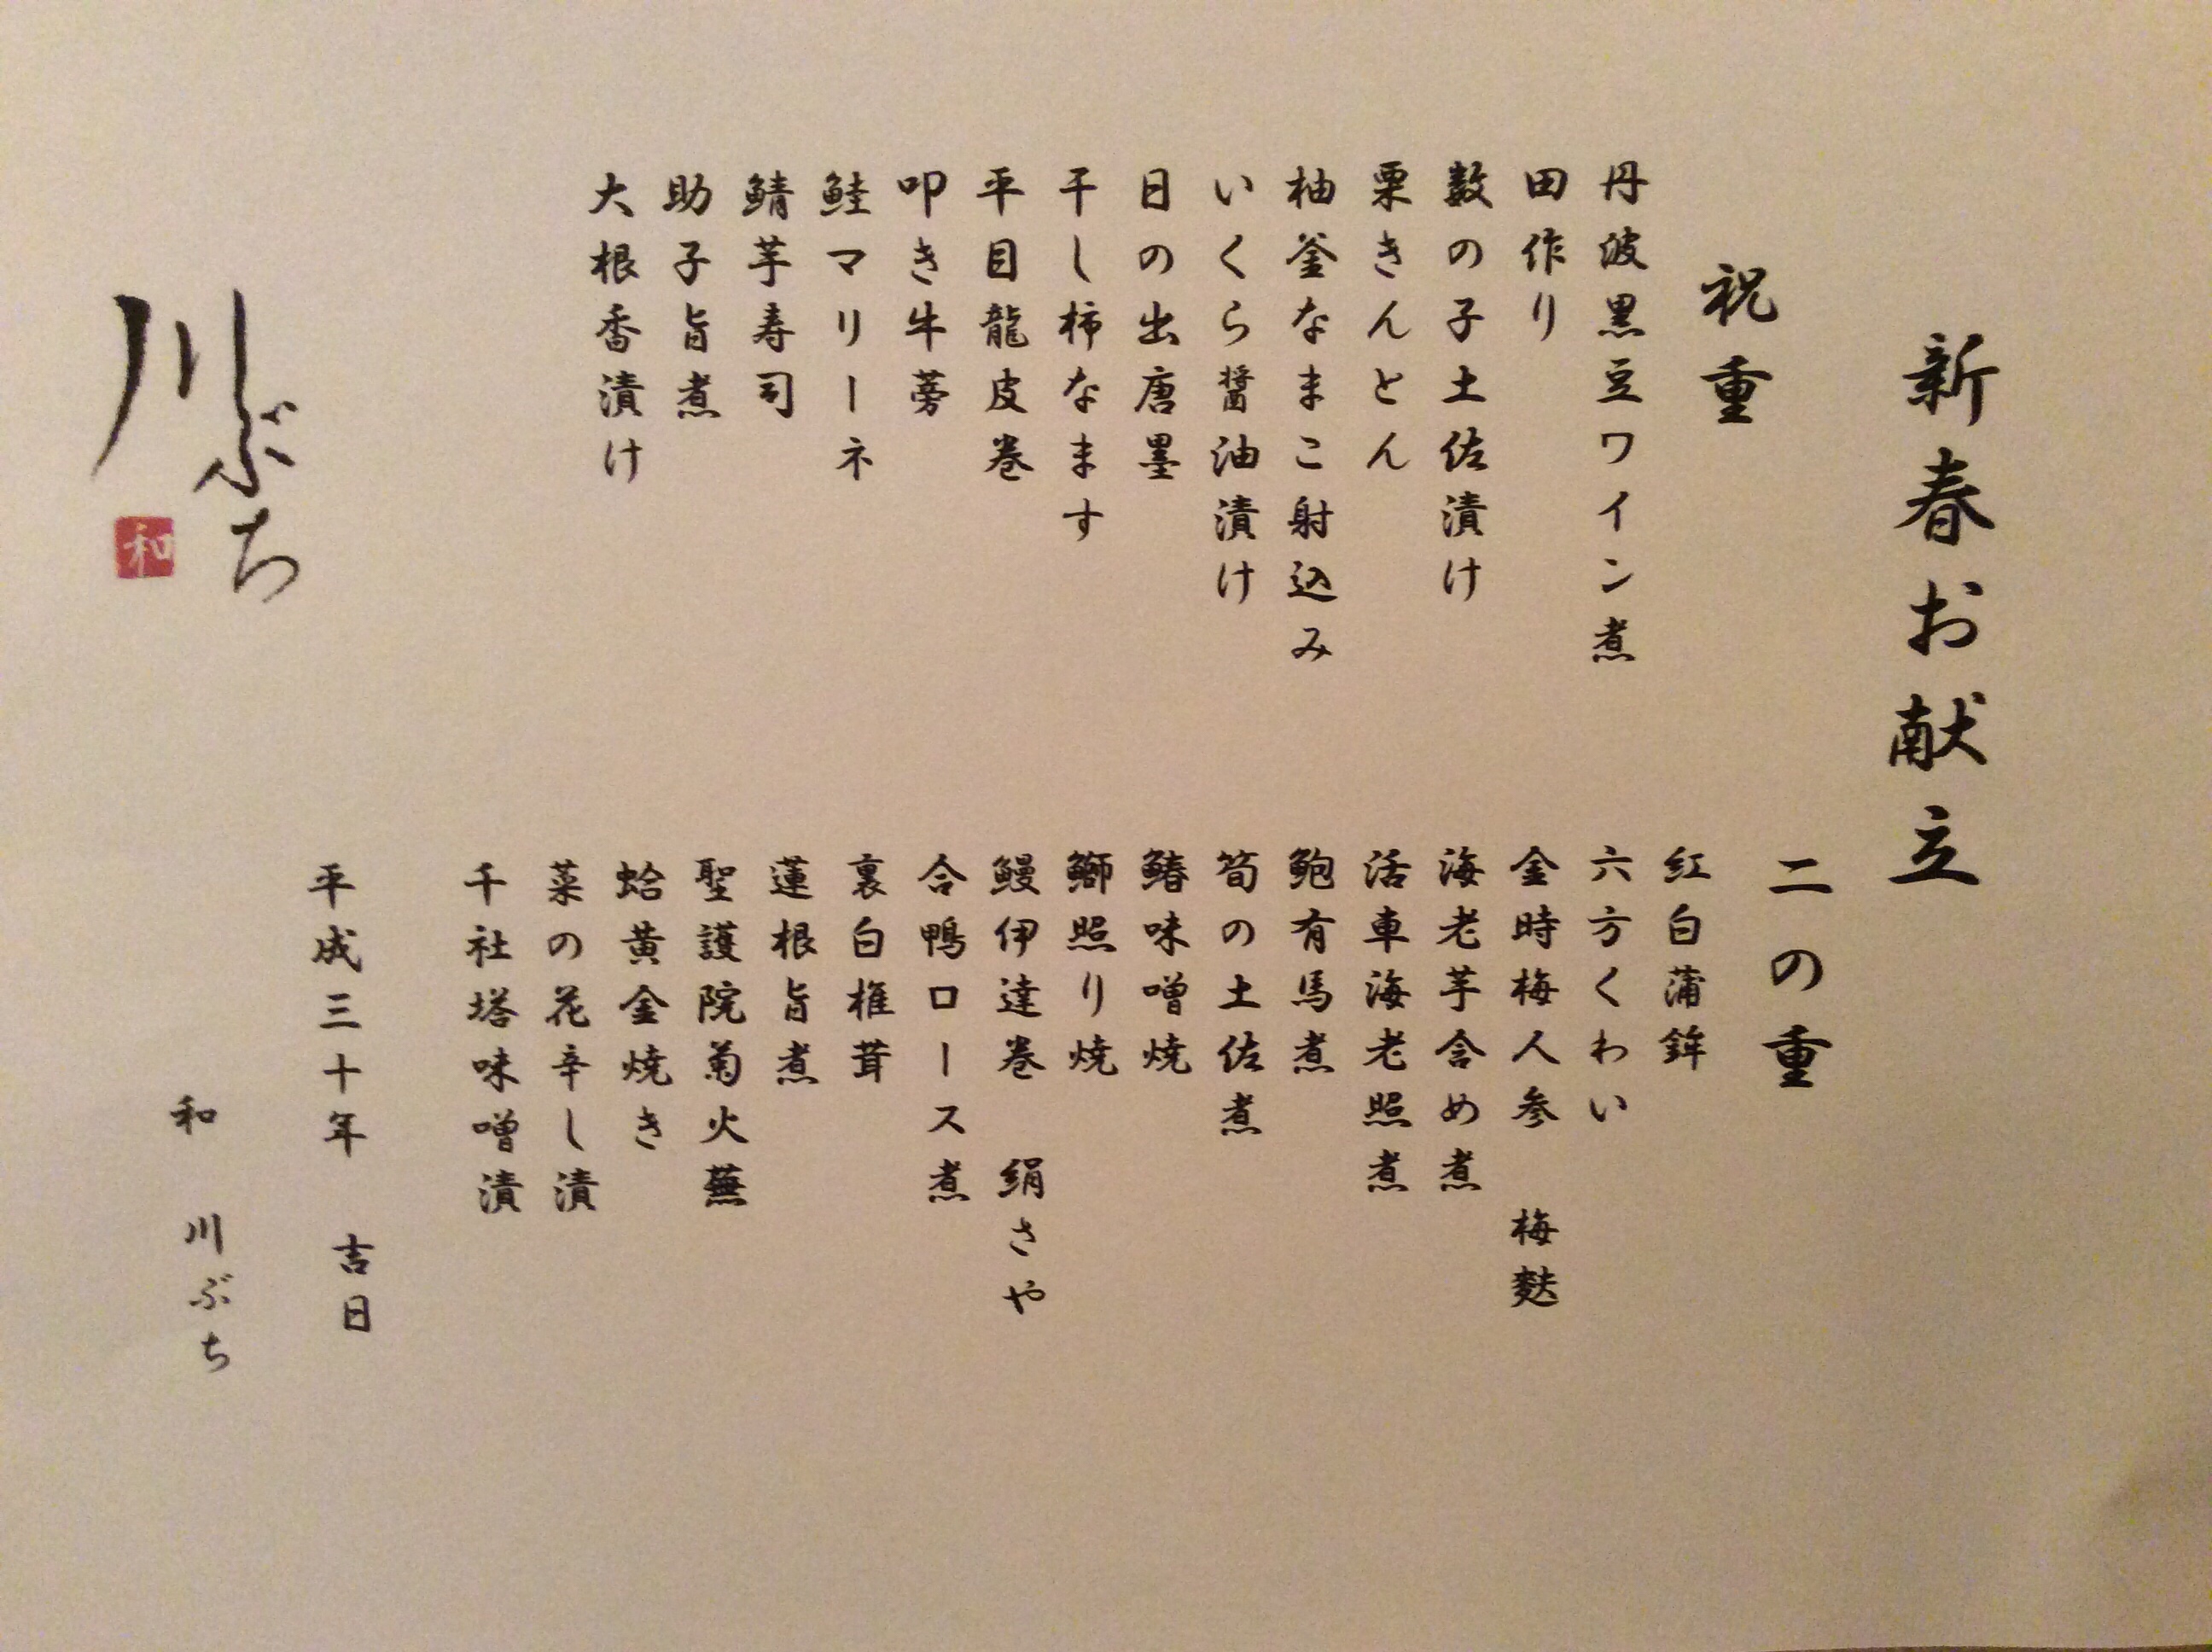 新春お献立
祝重
丹波黒豆ワイン煮
田作り
数の子土佐漬け
栗きんとん
柚釜なまこ射込み
いくら醤油漬け
日の出唐墨
干し柿なます
平目龍皮巻
叩き牛蒡
鮭マリーネ
鯖芋寿司
助子旨煮
大根香漬け
二の重
紅白蒲鉾
六方くわい
金時梅人参 梅麩
海老芋含め煮
活車海老照煮
鮑有馬煮
筍の土佐煮
鰆味噌焼
鰤照り焼
鰻伊達巻 絹さや
合鴨ロース煮
裏白椎茸
蓮根旨煮
聖護院菊火蕪
蛤黄金焼き
菜の花辛し漬
千社塔味噌漬
平成三十年 吉日
和 川ぶち
川ぶち
和